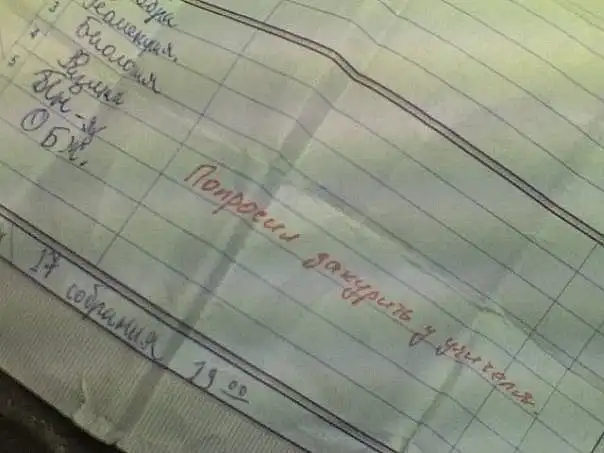 3 Геометрия.
4 Биология
5 Физика
Ын-яз
ОБЖ.
Попросил закурить у учителя.
17 собрания 19 00